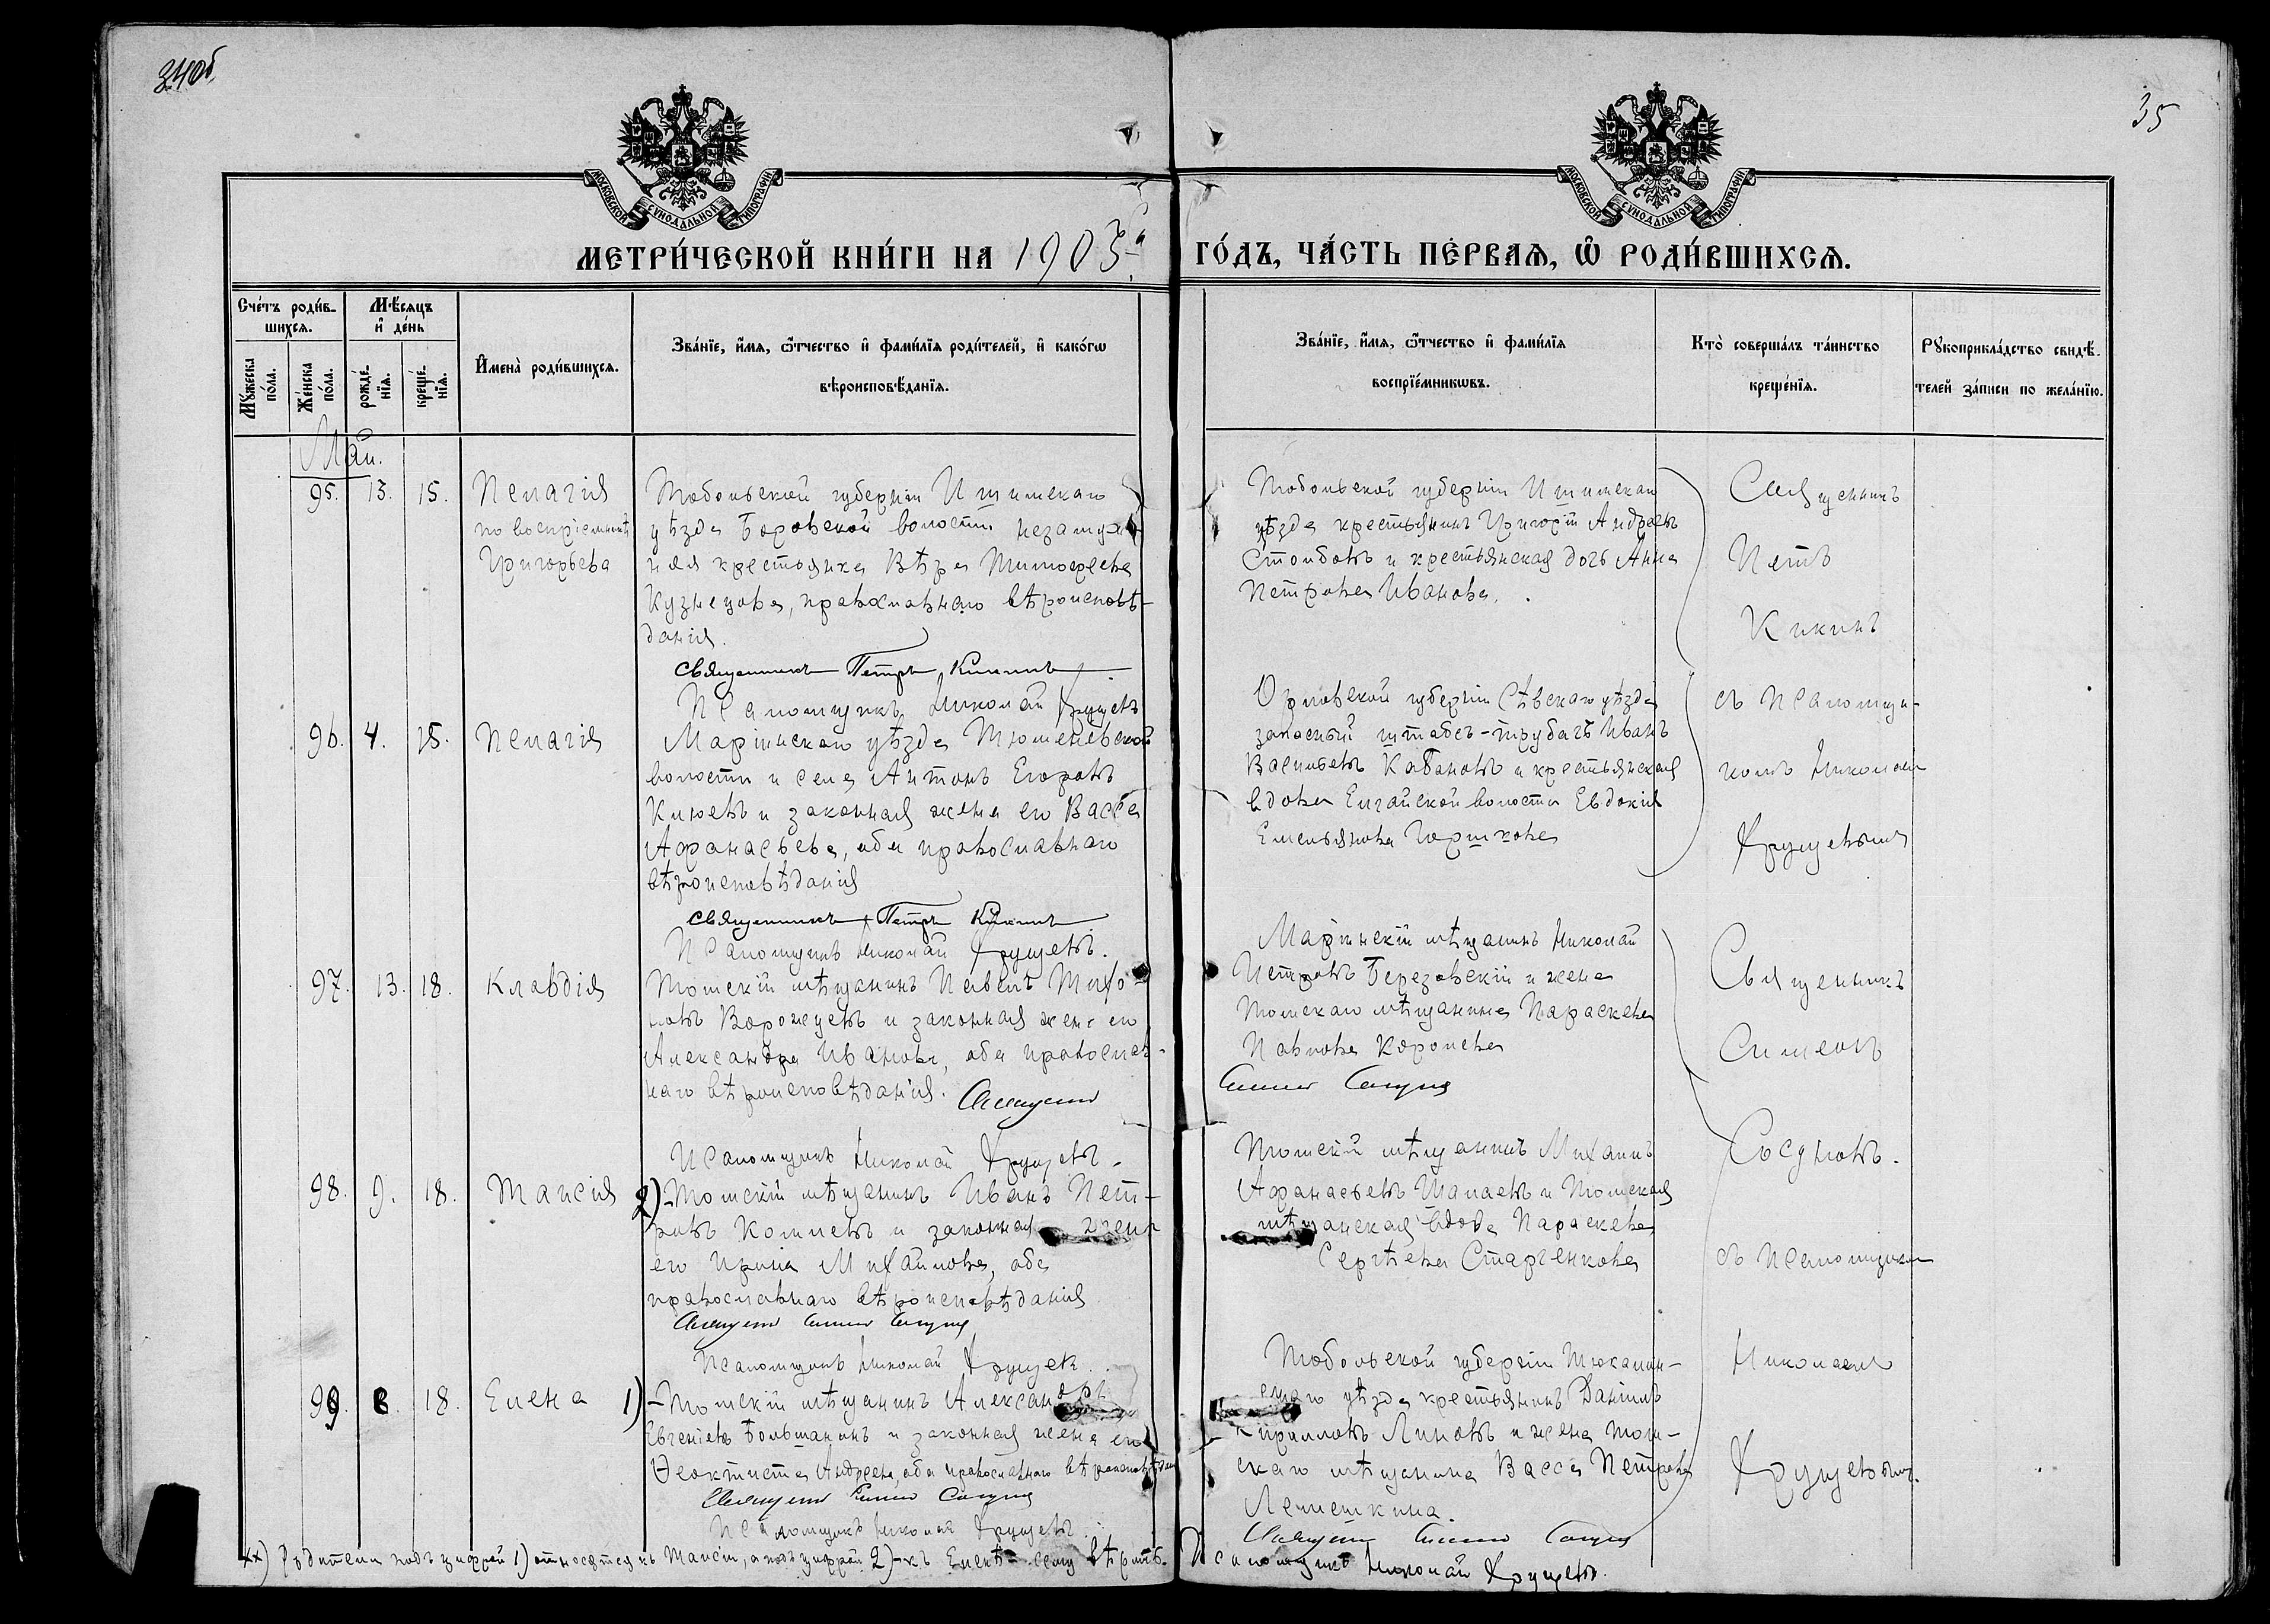 34об.
35
МОСКОВСКОЙ СѴНОДАЛЬНОЙ ТИПОГРАФІИ
МОСКОВСКОЙ СѴНОДАЛЬНОЙ ТИПОГРАФІИ
МЕТРИ́ЧЕСКОЙ КНИ́ГИ НА 1903й
ГО́ДЪ, ЧА́СТЬ ПЕ́РВАѦ, Ѡ҆ РОДИ́ВШИХСѦ.
Сче́тъ роди́в-
шихсѧ.
Мѣ́сѧцъ
и҆ де́нь
Мꙋ́жеска
по́ла.
Же́нска
по́ла.
рожде́-
нїѧ.
креще́-
нїѧ.
И҆мена̀ роди́вшихсѧ.
Зва́нїе, и҆́мѧ, ѻ҆́тчество и҆ фами́лїѧ роди́телей, и҆ како́гѡ
вѣроисповѣ́данїѧ.
Зва́нїе, и҆́мѧ, ѻ҆́тчество и҆ фами́лїѧ
воспрїе́мникѡвъ.
Кто̀ соверша́лъ та́инство
креще́нїѧ.
Рꙋкоприкла́дство свидѣ́-
телей за́писи по жела́нїю.
Май.
95. 13. 15. Пелагія
по воспріемникѣ
Григорьева
Тобольской губерніи Ишимскаго
уѣзда Боровской волости незамуж-
няя крестьянка Вѣра Тимофеева
Кузнецова, православнаго вѣроисповѣ-
данія.
Священникъ Петръ Кикинъ
Псаломщикъ Николай Хрущевъ
Тобольской губерніи Ишимскаго
уѣзда крестьянинъ Григорій Андреевъ
Столбовъ и крестьянская дочь Анна
Петрова Иванова.
Священникъ
Петръ
Кикинъ
96. 4. 15. Пелагія
Маріинскаго уѣзда Тюменевской
волости и села Антонъ Егоровъ
Клюевъ и законная жена его Васса
Афанасьева, оба православнаго
вѣроисповѣданія
Священникъ Петръ Кикинъ
Псаломщикъ Николай Хрущевъ.
Орловской губерніи Сѣвскаго уѣзда
запасный штабсъ-трубачъ Иванъ
Васильевъ Кабановъ и крестьянская
вдова Елгайской волости Евдокія
Емельянова Горшкова
съ псаломщи-
комъ Николаемъ
Хрущевымъ
97. 13. 18. Клавдія
Томскій мѣщанинъ Павелъ Тихо-
новъ Ворожцевъ и законная жена его
Александра Иванова, оба православ-
наго вѣроисповѣданія. Священникъ
Псаломщикъ Николай Хрущевъ.
Маріинскій мѣщанинъ Николай
Петровъ Березовскій и жена
Томскаго мѣщанина Параскева
Павлова Королева
Симеонъ Сосуновъ
Священникъ
Симеонъ
Сосуновъ.
98. 9. 18. Таисія
2) Томскій мѣщанинъ Иванъ Пет-
ровъ Комлевъ и законная жена
его Ирина Михайлова, оба
православнаго вѣроисповѣданія
Священникъ Симеонъ Сосуновъ
Псаломщикъ Николай Хрущевъ.
Томскій мѣщанинъ Михаилъ
Афанасьевъ Шалаевъ и Томская
мѣщанская вдова Параскева
Сергѣева Старченкова
съ псаломщикомъ
Николаемъ
Хрущевымъ.
99. 8. 18. Елена
1) Томскій мѣщанинъ Александръ
Евгеніевъ Большанинъ и законная жена его
Ѳеоктиста Андреева, оба православнаго вѣроисповѣданія
Священникъ Симеонъ Сосуновъ
Псаломщикъ Николай Хрущевъ.
Тобольской губерніи Тюкалин-
скаго уѣзда крестьянинъ Даніилъ
Кирилловъ Линовъ и жена Том-
скаго мѣщанина Васса Петрова
Лепешкина.
Священникъ Симеонъ Сосуновъ
хх) Родители подъ цифрой 1) относятся къ Таисіи, а подъ цифрой 2) - къ Еленѣ - сему вѣрить. Псаломщикъ Николай Хрущевъ.